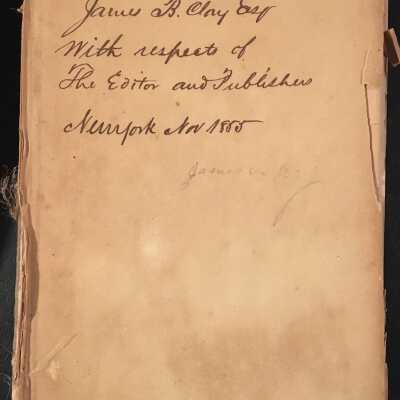 James B. Clow Esq
With respects of
The Editor and Publishers
Newyork Nov 1885
James